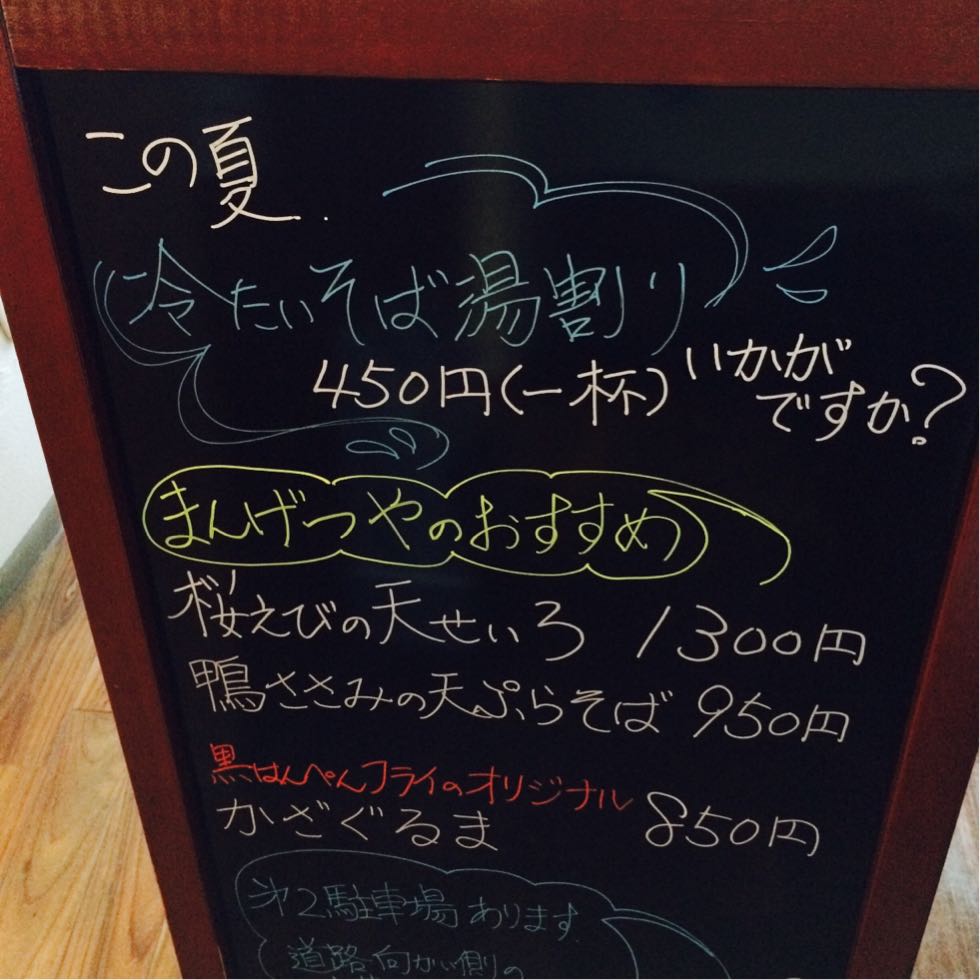 この夏.
冷たいそば湯割り
450円(一杯) いかがですか?
まんげつやのおすすめ
桜えびの天せいろ 1300円
鴨ささみの天ぷらそば 950円
黒はんぺんフライのオリジナル
かざぐるま 850円
第2駐車場あります
道路向かい側の